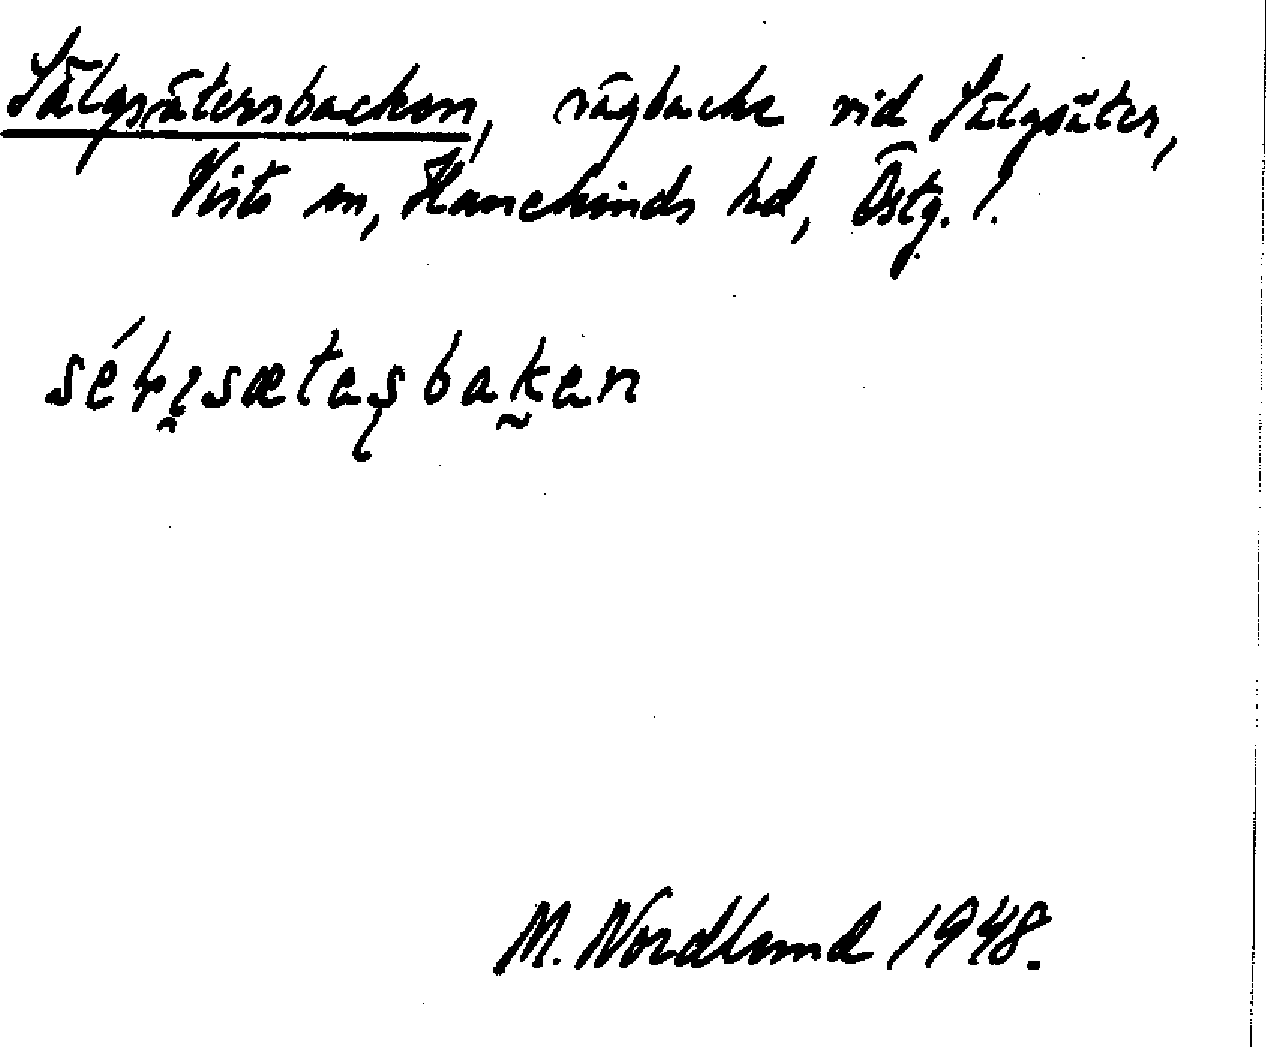 Sälgsätersbacken, vägbacke vid Sälgsäter,
Vists sn, Hanekinds hd, Östg. l.
M. Nordlund 1948.